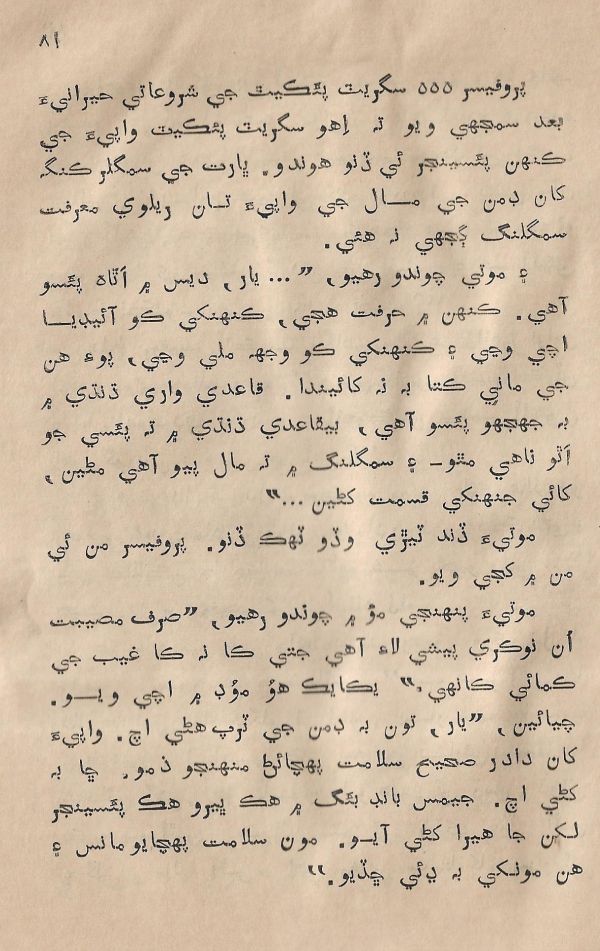 ۸۱
پروفيسر ۵۵۵ سگريٽ پئڪيٽ جي شروعاتي حيرانيءَ
بعد سمجهي ويو ته اِهو سگريٽ پئڪيٽ واپيءَ جي
ڪنهن پئسينجر ئي ڏنو هوندو. ڀارت جي سمگلر ڪنگ
کان دمن جي مال جي واپيءَ تان ريلوي معرفت
سمگلنگ ڳجهي نه هئي.
۽ موتي چوندو رهيو, ”... يار, ديس ۾ اَٿاهه پئسو
آهي. ڪنهن ۾ حرفت هجي, ڪنهنکي ڪو آئيڊيا
اچي وڃي ۽ ڪنهنکي ڪو وجهه ملي وڃي, پوءِ هن
جي ماني ڪتا به نه کائيندا. قاعدي واري ڌنڌي ۾
به جهجهو پئسو آهي, بيقاعدي ڌنڌي ۾ ته پئسي جو
اَٿو ناهي مٿو- ۽ سمگلنگ ۾ ته مال پيو آهي مڻين,
کائي جنهنکي قسمت کڻين...“
موتيءَ ڏند ٽيڙي وڏو ٽهڪ ڏنو. پروفيسر من ئي
من ۾ کڄي ويو.
موتيءَ پنهنجي مؤ ۾ چوندو رهيو, ”صرف مصيبت
اُن نوڪري پيشي لاءِ آهي جتي ڪا نه ڪا غيب جي
ڪمائي ڪانهي.“ يڪايڪ هوُ موُڊ ۾ اچي ويو.
چيائين, ”يار, تون به دمن جي ٽرپ هڻي اچ. واپيءَ
کان دادر صحيح سلامت پهچائڻ منهنجو ذمو. ڇا به
کڻي اچ. جيمس بانڊ بئگ ۾ هڪ ڀيرو هڪ پئسينجر
لکن جا هيرا کڻي آيو. مون سلامت پهچايومانس ۽
هن مونکي به ڍئي ڇڏيو.“